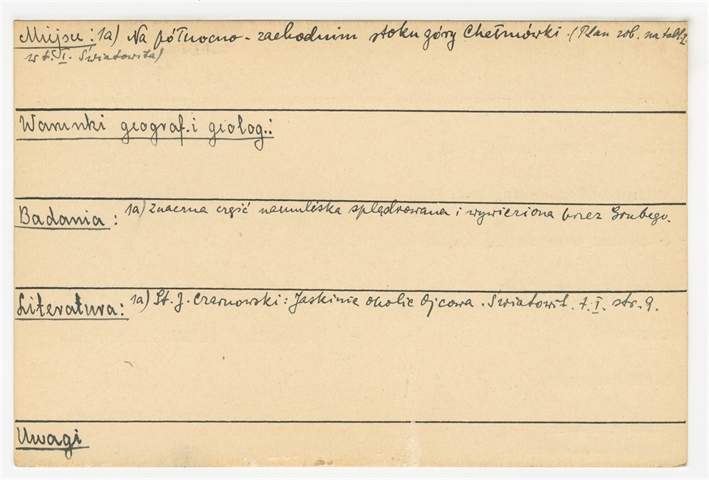 Miejsce: 1a) Na północno-zachodnim stoku góry Chełmówki. (Plan zob. na tabl.
w t. I. Światowita)
Warunki geograf. i geolog.:
Badania: 1a) Znaczna część namuliska splądrowana i wywieziona przez Grubego.
Literatura: 1a) St. J. Czarnowski: Jaskinie okolic Ojcowa. Światowit. t. I. str. 9.
Uwagi